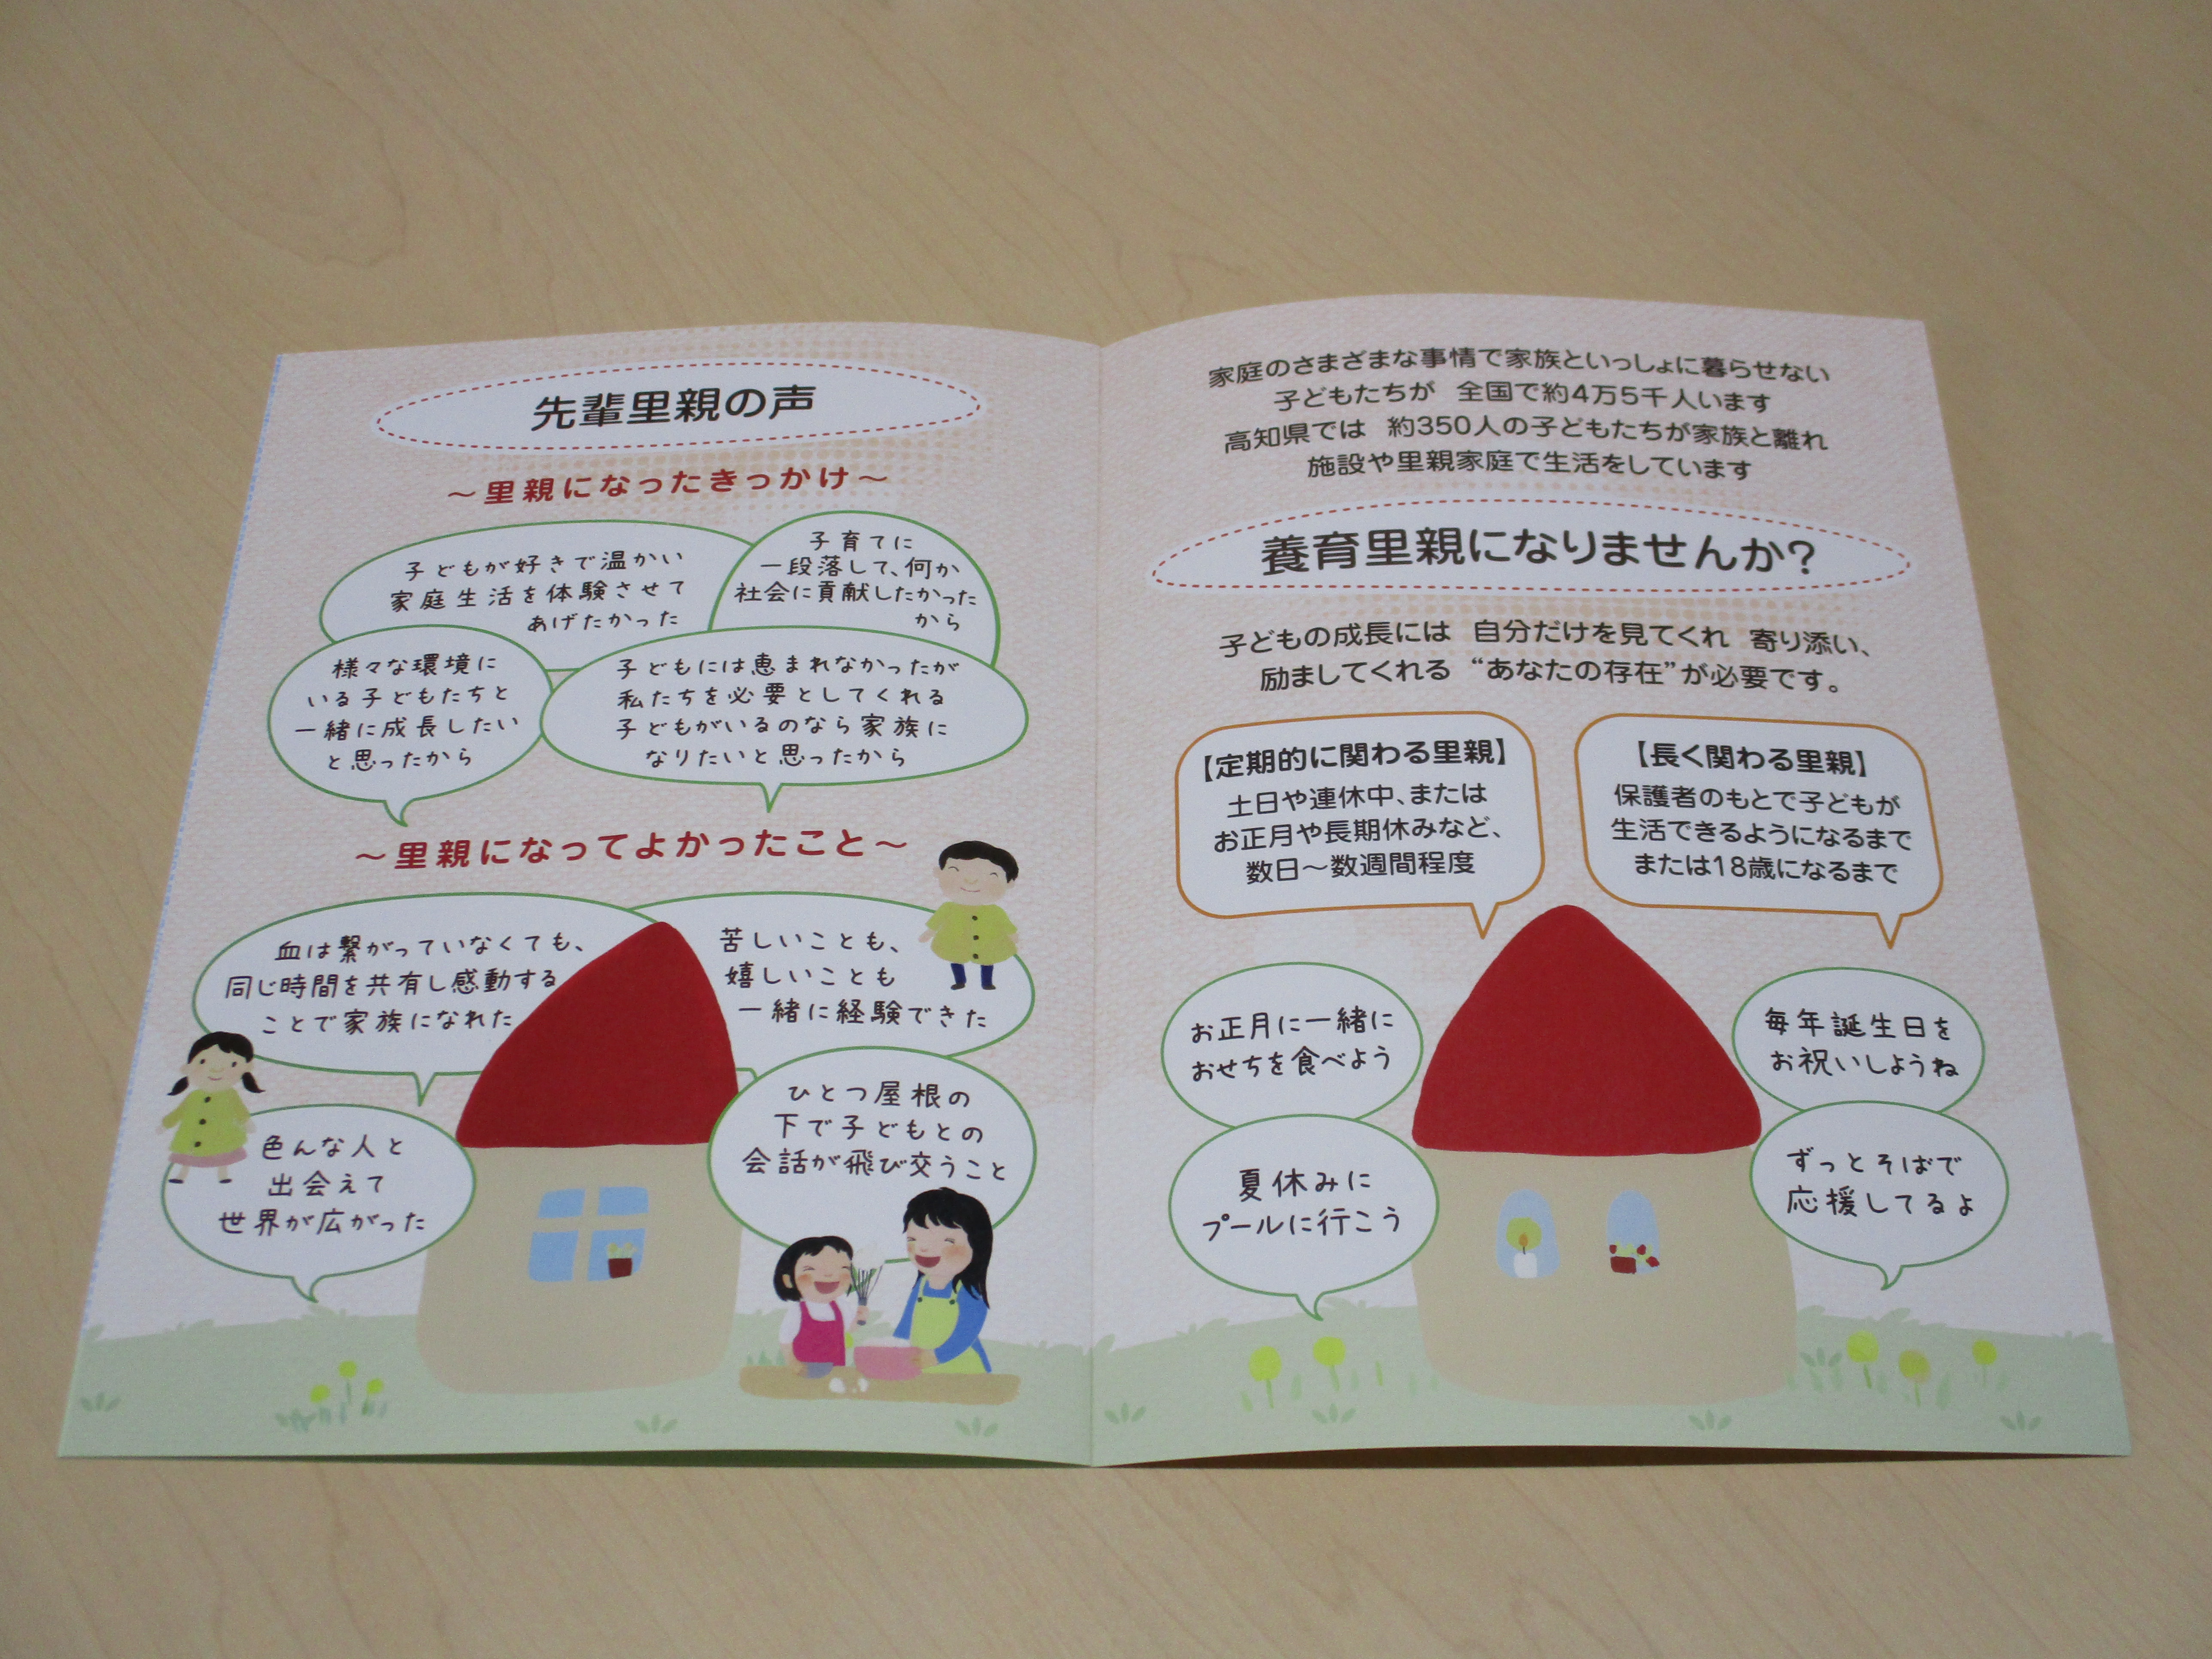 先輩里親の声
～里親になったきっかけ～
子どもが好きで温かい
家庭生活を体験させて
あげたかった
子育てに
一段落して、何か
社会に貢献したかった
から
様々な環境に
いる子どもたちと
一緒に成長したい
と思ったから
子どもには恵まれなかったが
私たちを必要としてくれる
子どもがいるのなら家族に
なりたいと思ったから
～里親になってよかったこと～
血は繋がっていなくても、
同じ時間を共有し感動する
ことで家族になれた
苦しいことも、
嬉しいことも
一緒に経験できた
色んな人と
出会えて
世界が広がった
ひとつ屋根の
下で子どもとの
会話が飛び交うこと
家庭のさまざまな事情で家族といっしょに暮らせない
子どもたちが 全国で約4万5千人います
高知県では 約350人の子どもたちが家族と離れ
施設や里親家庭で生活をしています
養育里親になりませんか?
子どもの成長には 自分だけを見てくれ 寄り添い、
励ましてくれる “あなたの存在”が必要です。
【定期的に関わる里親】
土日や連休中、または
お正月や長期休みなど、
数日～数週間程度
【長く関わる里親】
保護者のもとで子どもが
生活できるようになるまで
または18歳になるまで
お正月に一緒に
おせちを食べよう
夏休みに
プールに行こう
毎年誕生日を
お祝いしようね
ずっとそばで
応援してるよ